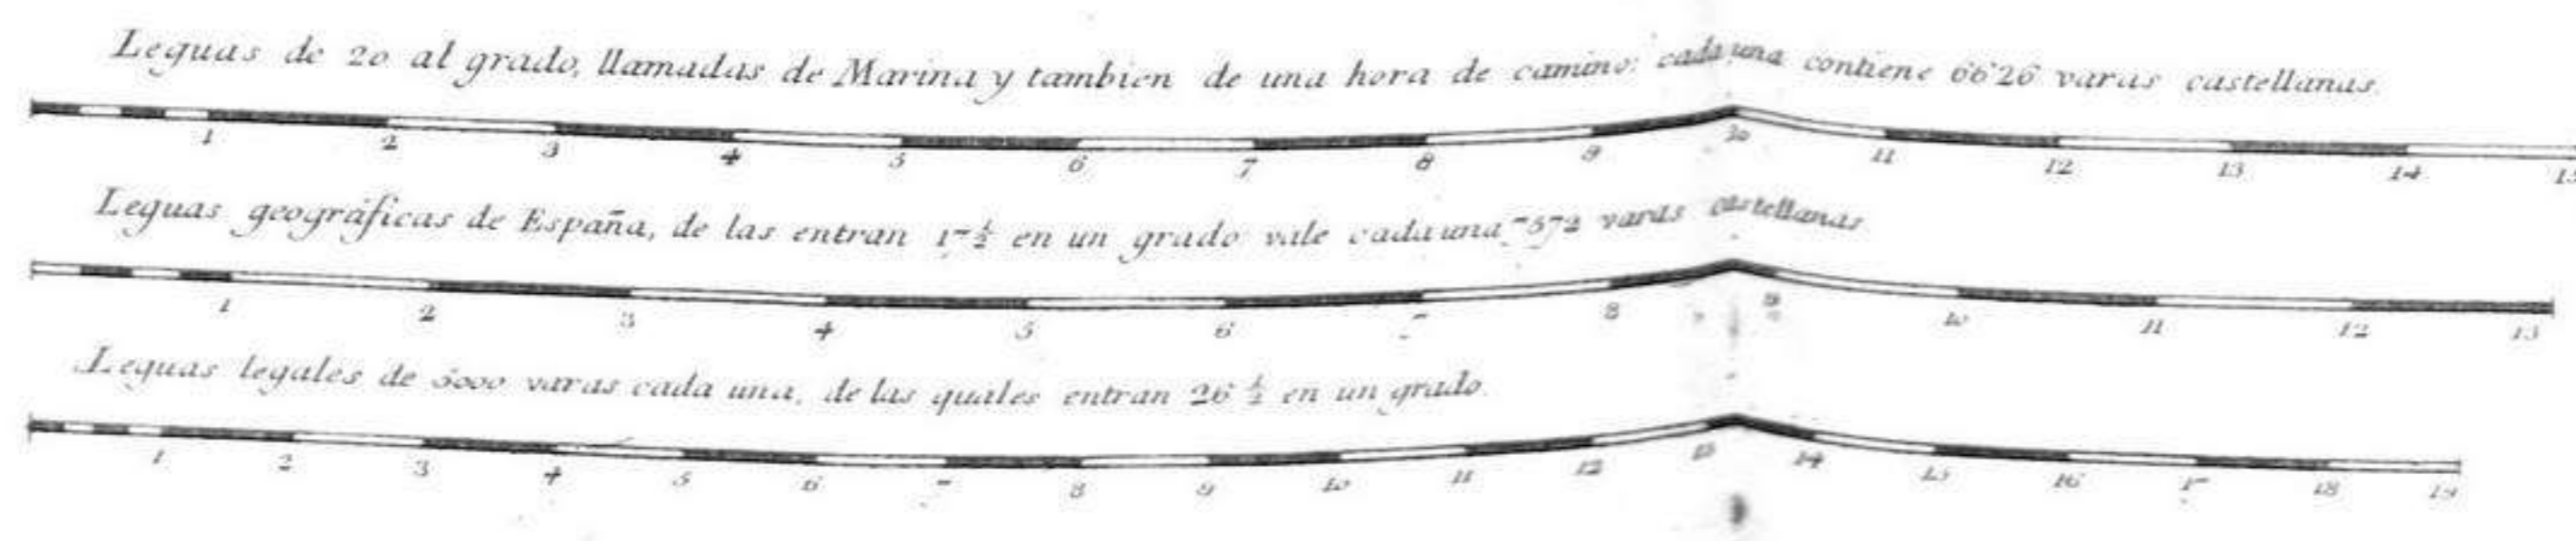 Leguas de 20 al grado, llamadas de Marina y tambien de una hora de camino: cada una contiene 6626 varas castellanas.
1 2 3 4 5 6 7 8 9 10 11 12 13 14 15
Leguas geográficas de España, de las entran 17 1/2 en un grado vale cada una 7572 varas castellanas
1 2 3 4 5 6 7 8 9 10 11 12 13
Leguas legales de 5000 varas cada una, de las quales entran 26 1/2 en un grado.
1 2 3 4 5 6 7 8 9 10 11 12 13 14 15 16 17 18 19